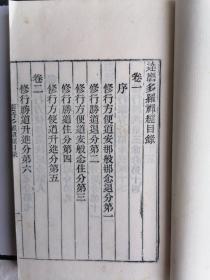 達磨多羅禪經目錄
卷一
序
修行方便道安那般那念退分第一
修行勝道退分第二
修行方便道安般念住分第三
修行勝道住分第四
修行方便道升進分第五
卷二
修行勝道升進分第六